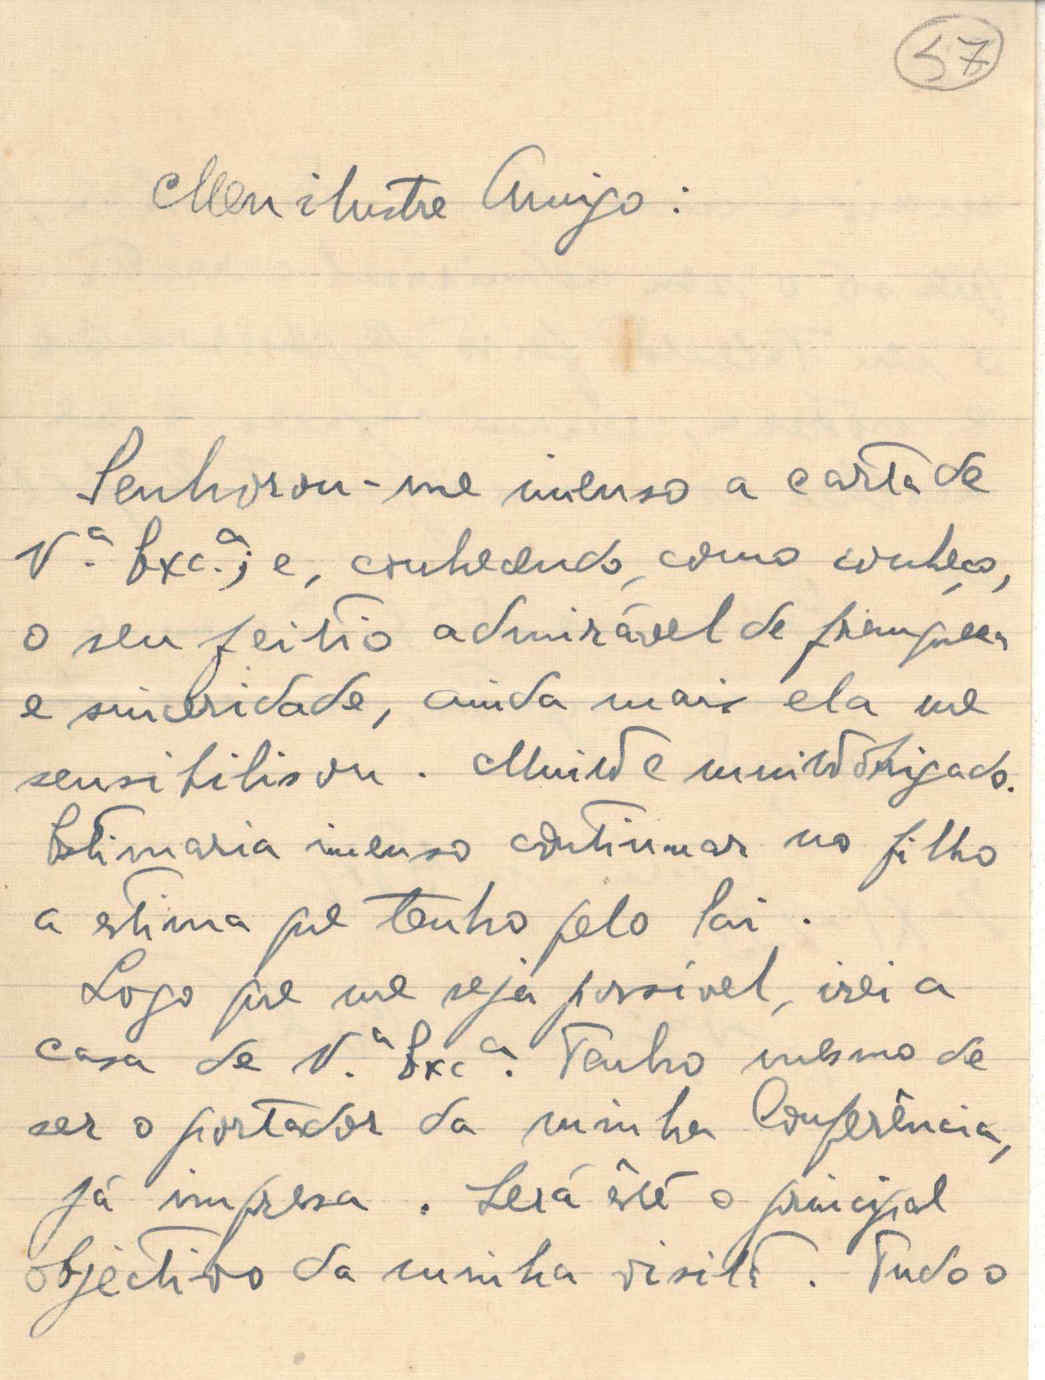 57
Meu ilustre Amigo:
Penhorou-me imenso a carta de
V.ª Exc.ª; e, conhecendo, como conheço,
o seu feitio admirável de franqueza
e sinceridade, ainda mais ela me
sensibilisou. Muito e muito obrigado.
Estimaria imenso continuar no filho
a estima que tenho pelo Pai.
Logo que me seja possível, irei a
casa de V.ª Exc.ª. Tenho mesmo de
ser o portador da minha Conferência,
já impressa. Será êste o principal
objectivo da minha visita. Tudo o